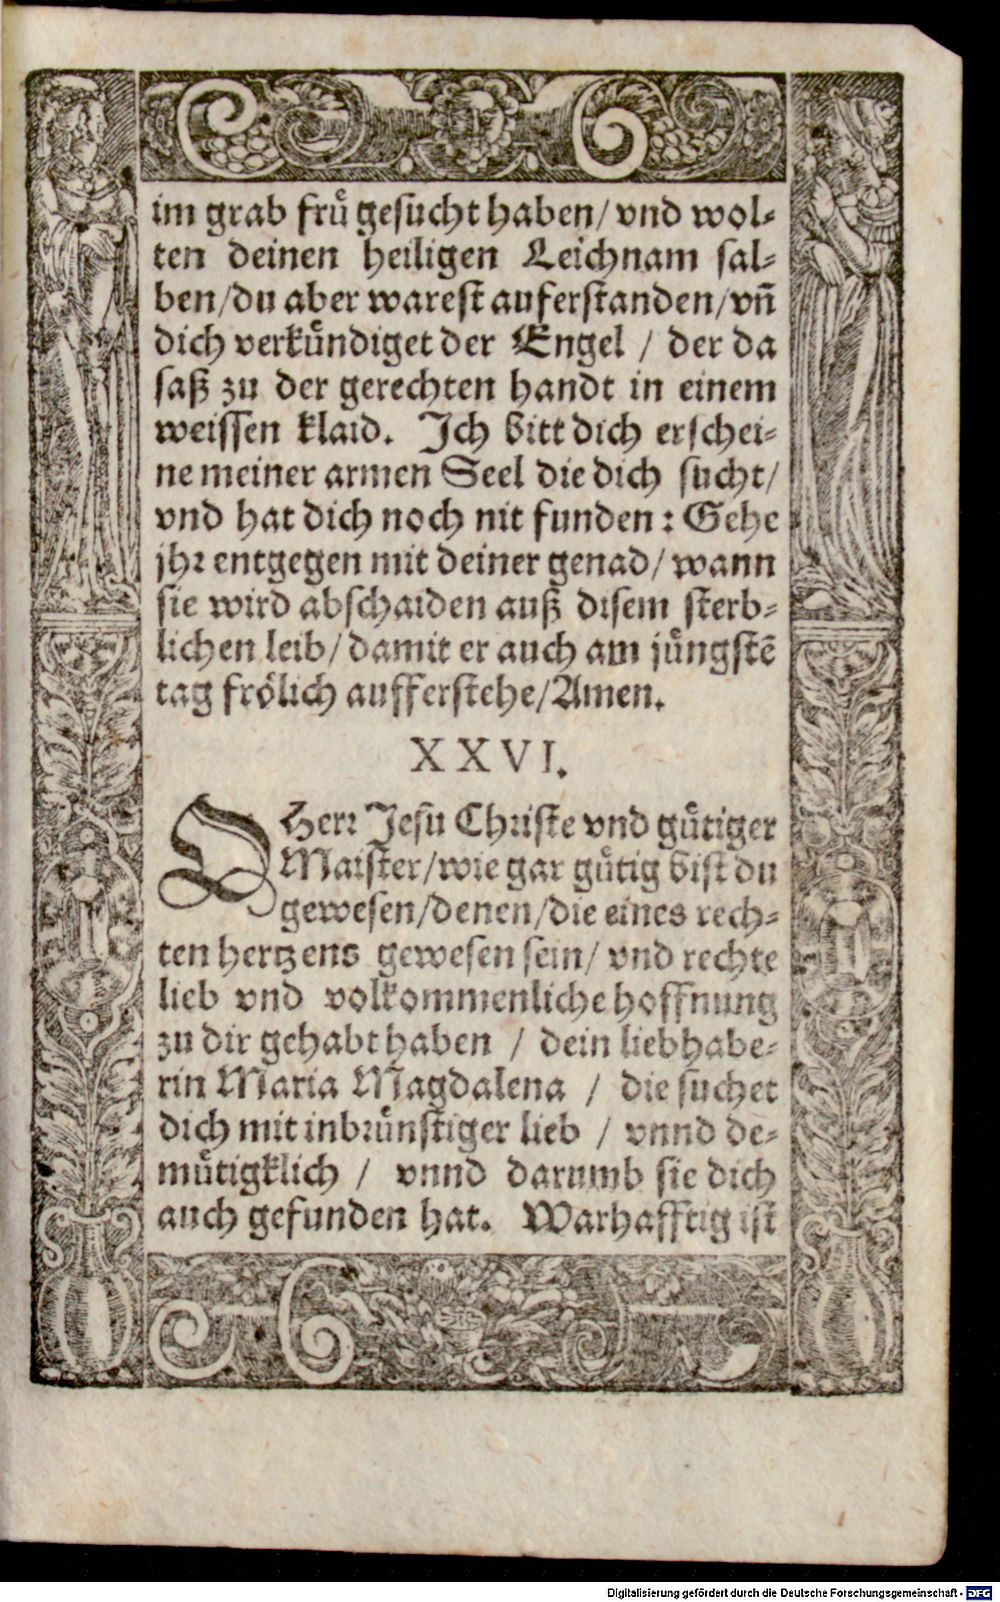 im grab fruͤ gesucht haben/ vnd wol⸗
ten deinen heiligen Leichnam sal⸗
ben/ du aber warest auferstanden/ vn̄
dich verkuͤndiget der Engel / der da
saß zu der gerechten handt in einem
weissen klaid. Ich bitt dich erschei⸗
ne meiner armen Seel die dich sucht/
vnd hat dich noch nit funden: Gehe
jhr entgegen mit deiner genad/ wann
sie wird abschaiden auß disem sterb⸗
lichen leib/ damit er auch am juͤngstē
tag froͤlich aufferstehe/ Amen.
XXVI.
O Herr Jesu Christe vnd guͤtiger
Maister/ wie gar guͤtig bist du
gewesen/ denen/ die eines rech⸗
ten hertzens gewesen sein/ vnd rechte
lieb vnd volkommenliche hoffnung
zu dir gehabt haben / dein liebhabe⸗
rin Maria Magdalena / die suchet
dich mit inbruͤnstiger lieb / vnnd de⸗
muͤtigklich / vnnd darumb sie dich
auch gefunden hat. Warhafftig ist
Digitalisierung gefördert durch die Deutsche Forschungsgemeinschaft - DFG